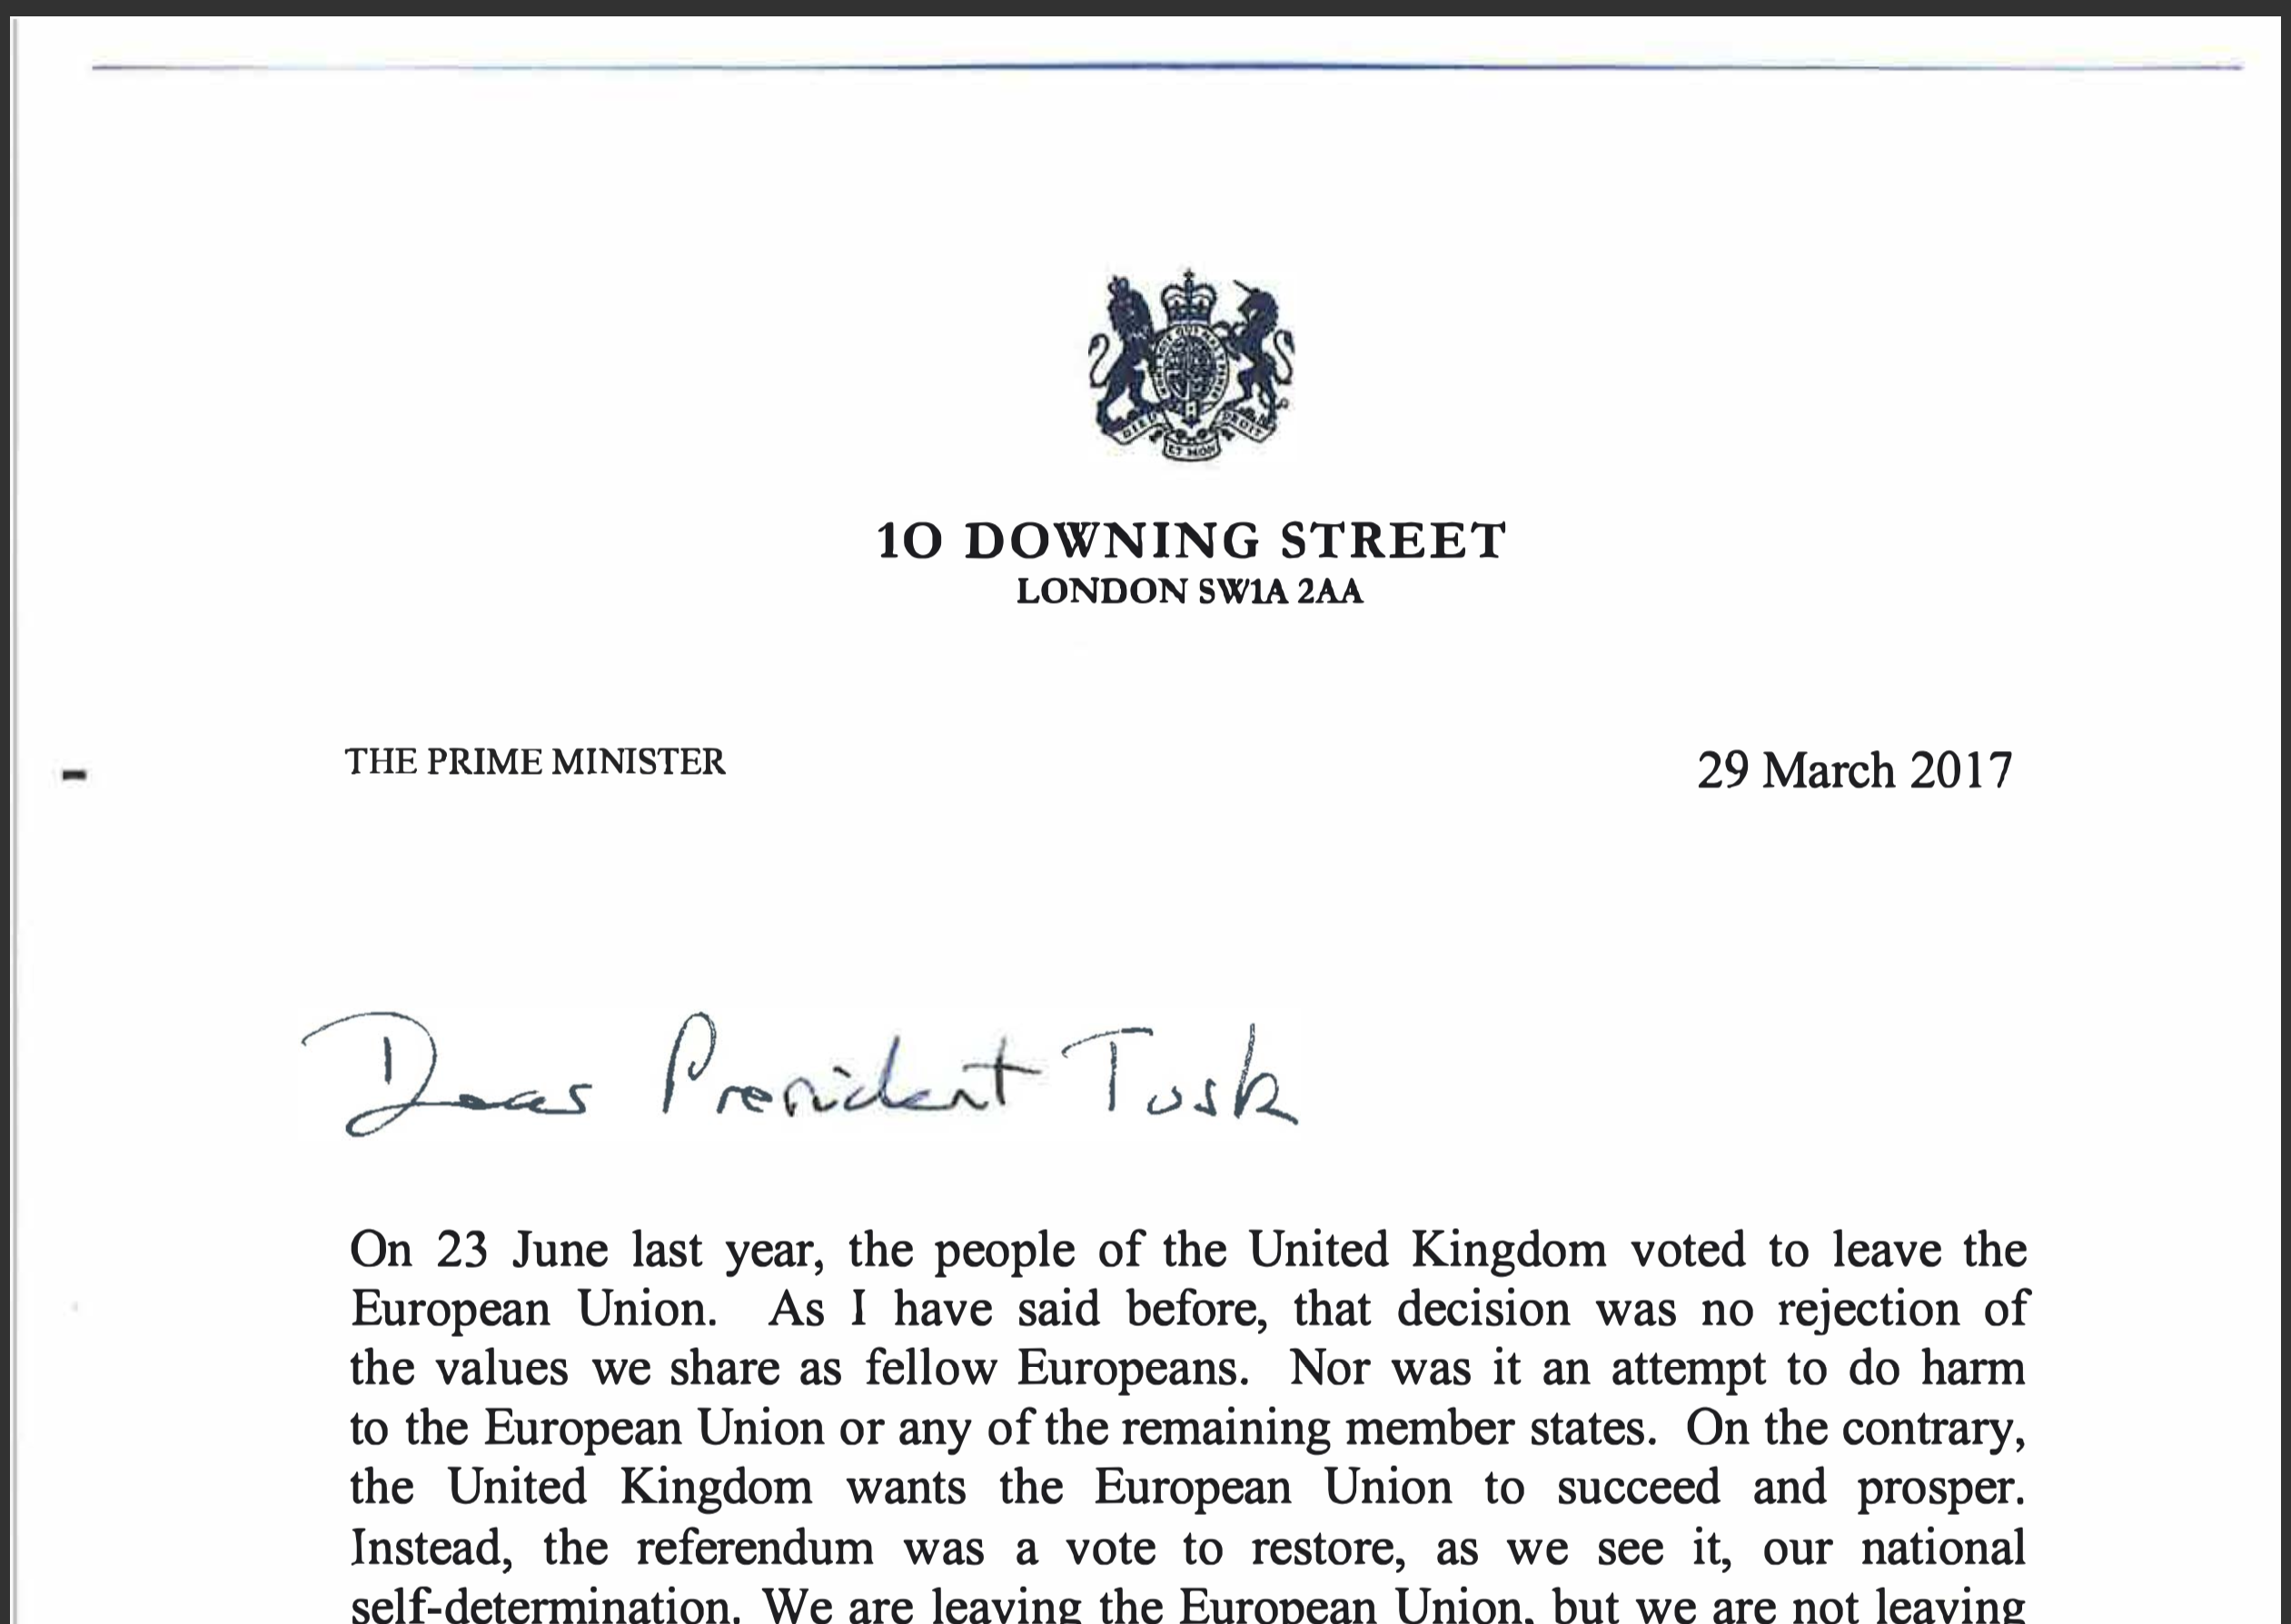 DIEU ET MON DROIT
10 DOWNING STREET
LONDON SW1A 2AA
THE PRIME MINISTER
29 March 2017
Dear President Tusk
On 23 June last year, the people of the United Kingdom voted to leave the
European Union. As I have said before, that decision was no rejection of
the values we share as fellow Europeans. Nor was it an attempt to do harm
to the European Union or any of the remaining member states. On the contrary,
the United Kingdom wants the European Union to succeed and prosper.
Instead, the referendum was a vote to restore, as we see it, our national
self-determination. We are leaving the European Union, but we are not leaving